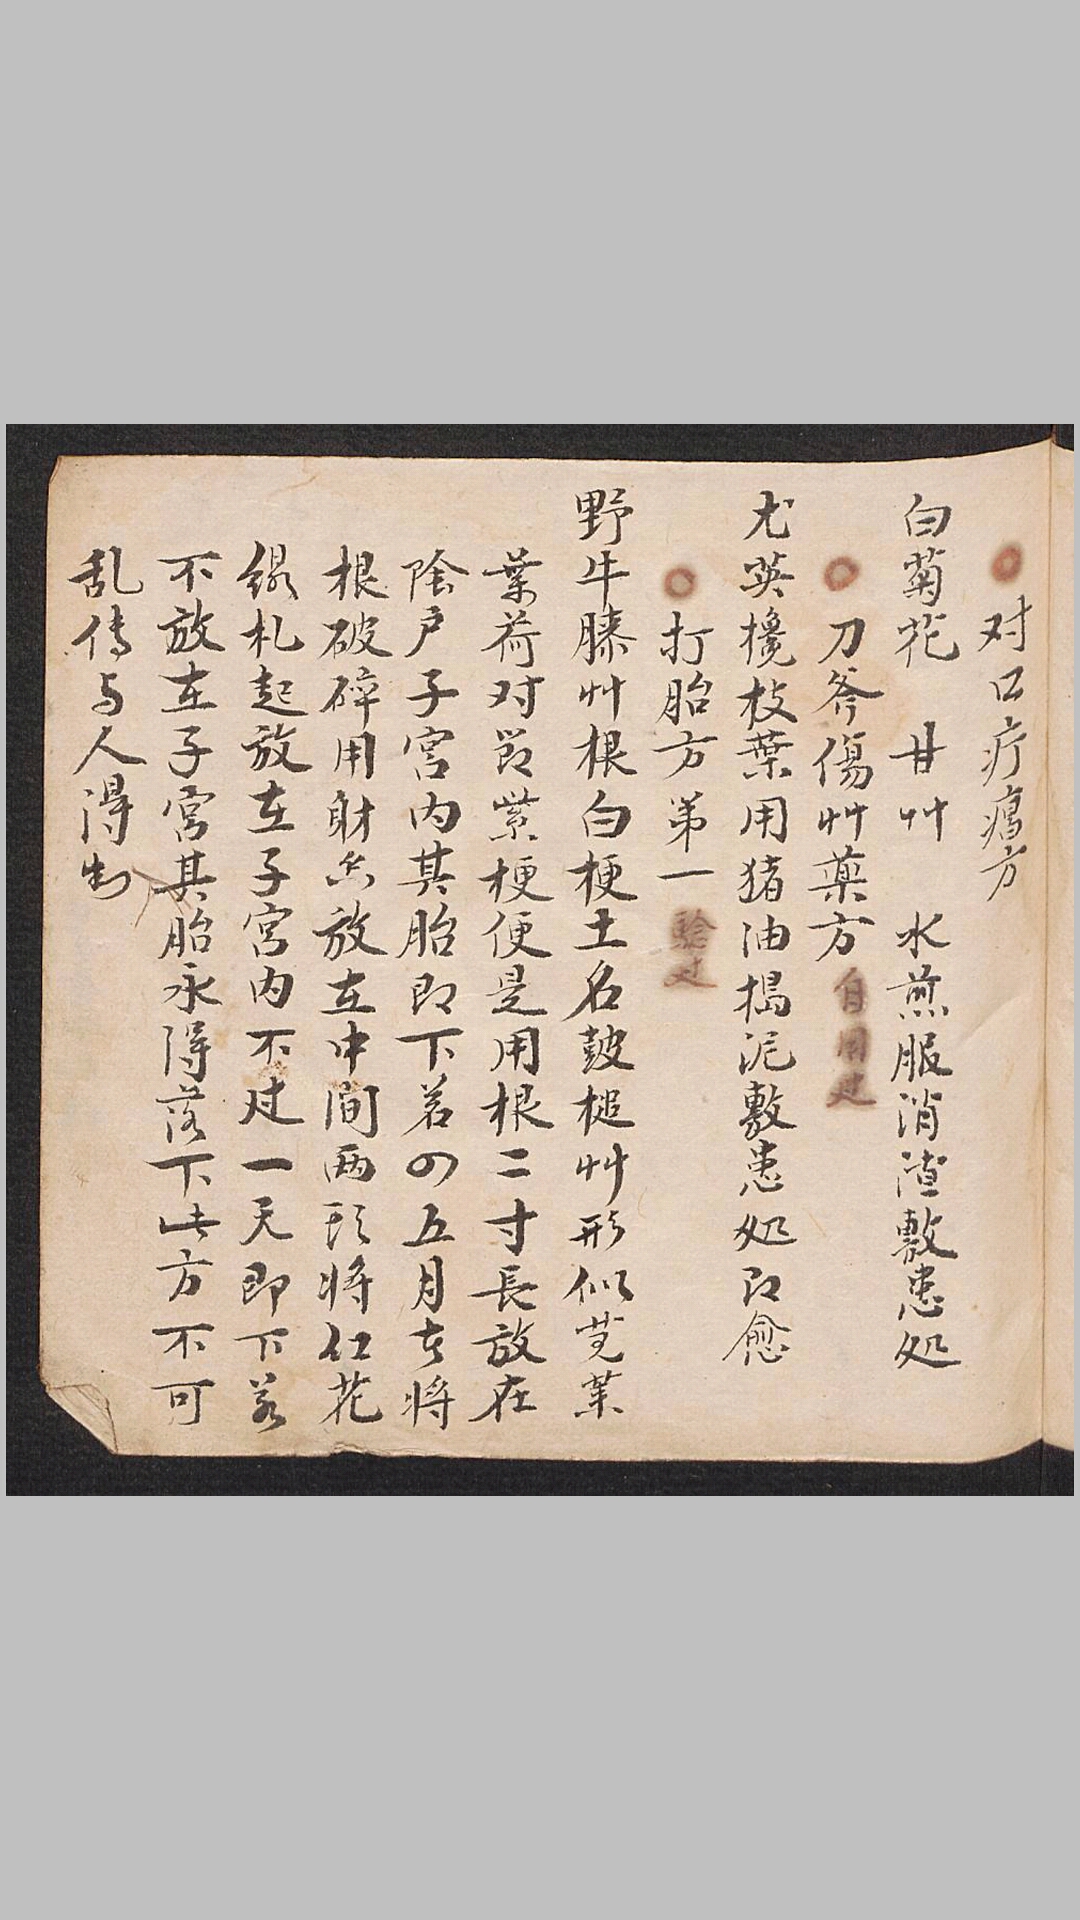 对口疔瘡方
白菊花 甘艸 水煎服消渣敷患处
刀斧傷艸藥方 自用过
尤英欖枝葉用猪油搗泥敷患处即愈
打胎方第一 驗过
野牛膝艸根白梗土名皷槌艸形似莧葉
葉荷对節紫梗便是用根二寸長放在
陰户子宮内其胎即下若四五月者将
根破碎用射香放在中间両頭将红花
線札起放在子宮内不过一天即下若
不放在子宮其胎永得落下此方不可
乱传与人得制